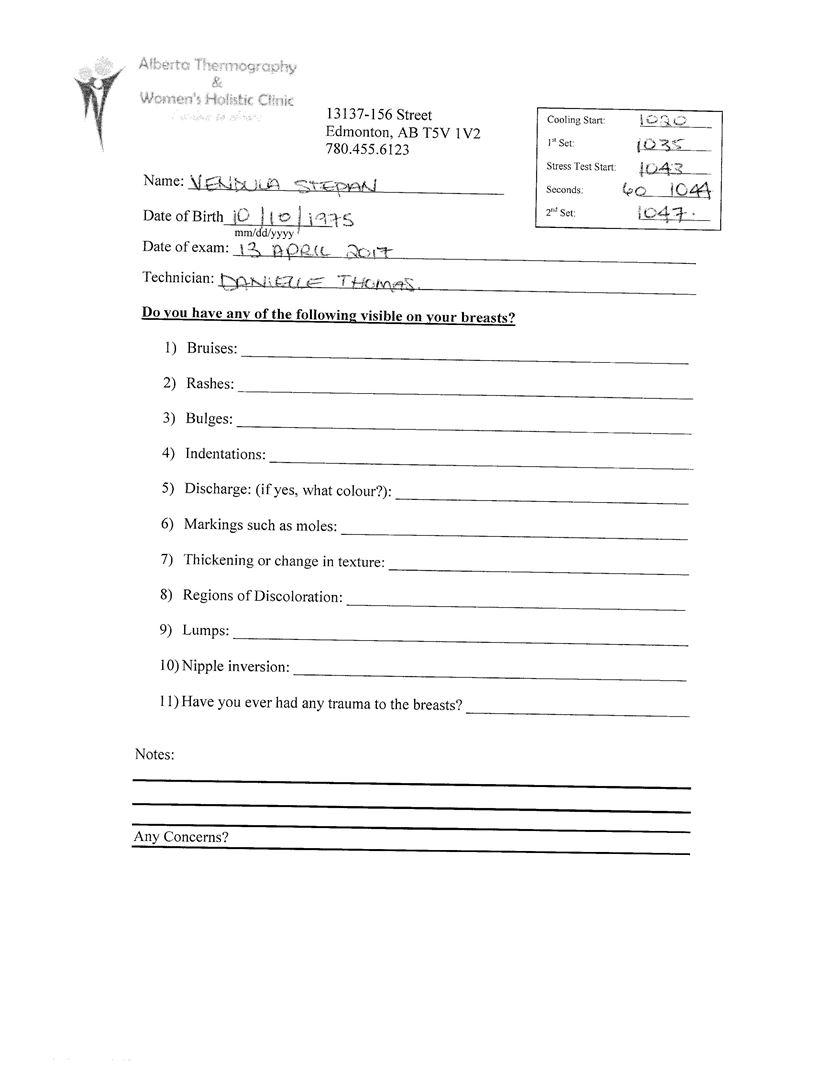 Alberta Thermography
&
Women's Holistic Clinic
13137-156 Street
Edmonton, AB T5V 1V2
780.455.6123
Cooling Start: 1020
1st Set: 1035
Stress Test Start: 1043
Seconds: 60 1044
2nd Set: 1047.
Name: VENDULA STEPAN
Date of Birth 10/10/1975
mm/dd/yyyy
Date of exam: 13 APRIL 2017
Technician: DANIELLE THOMAS.
Do you have any of the following visible on your breasts?
1) Bruises:
2) Rashes:
3) Bulges:
4) Indentations:
5) Discharge: (if yes, what colour?):
6) Markings such as moles:
7) Thickening or change in texture:
8) Regions of Discoloration:
9) Lumps:
10) Nipple inversion:
11) Have you ever had any trauma to the breasts?
Notes:
Any Concerns?